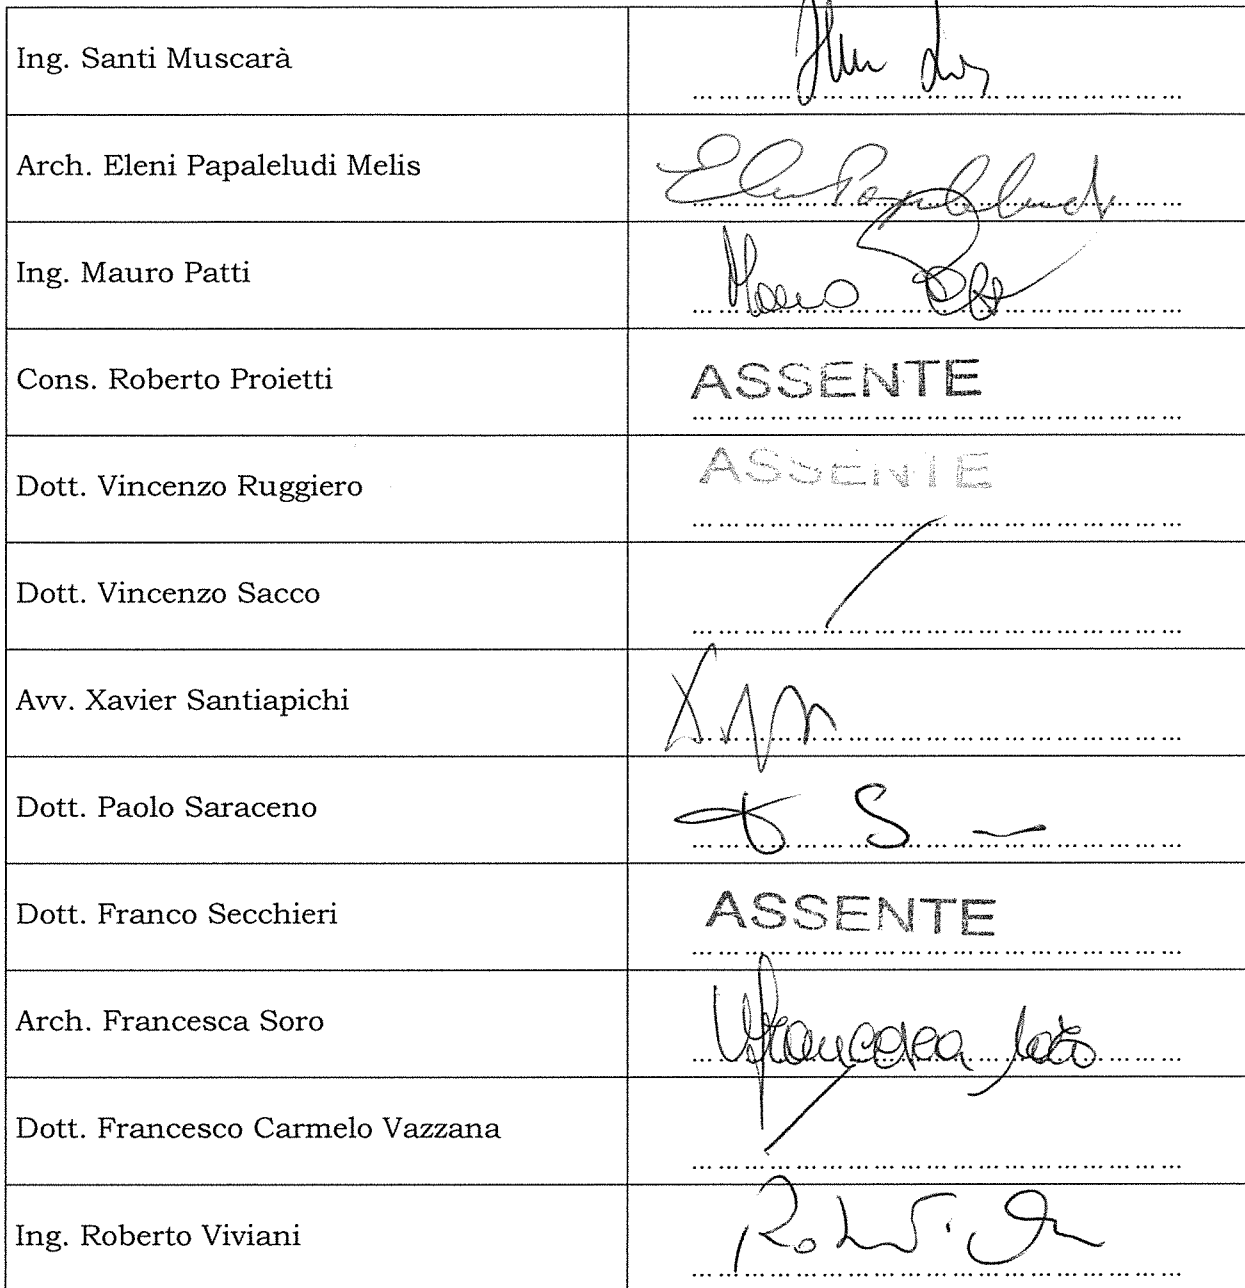 Ing. Santi Muscarà
Arch. Eleni Papaleludi Melis
Ing. Mauro Patti
Mauro
Cons. Roberto Proietti
ASSENTE
Dott. Vincenzo Ruggiero
ASSENTE
Dott. Vincenzo Sacco
Avv. Xavier Santiapichi
Dott. Paolo Saraceno
Dott. Franco Secchieri
ASSENTE
Arch. Francesca Soro
Francesca Soro
Dott. Francesco Carmelo Vazzana
Ing. Roberto Viviani